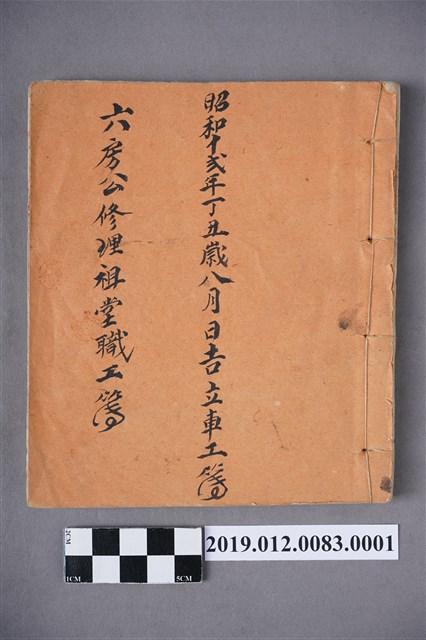 昭和十弍年丁丑歲八月日吉立車工簿
六房公修理祖堂職工簿
2CM
1CM
5CM
2019.012.0083.0001